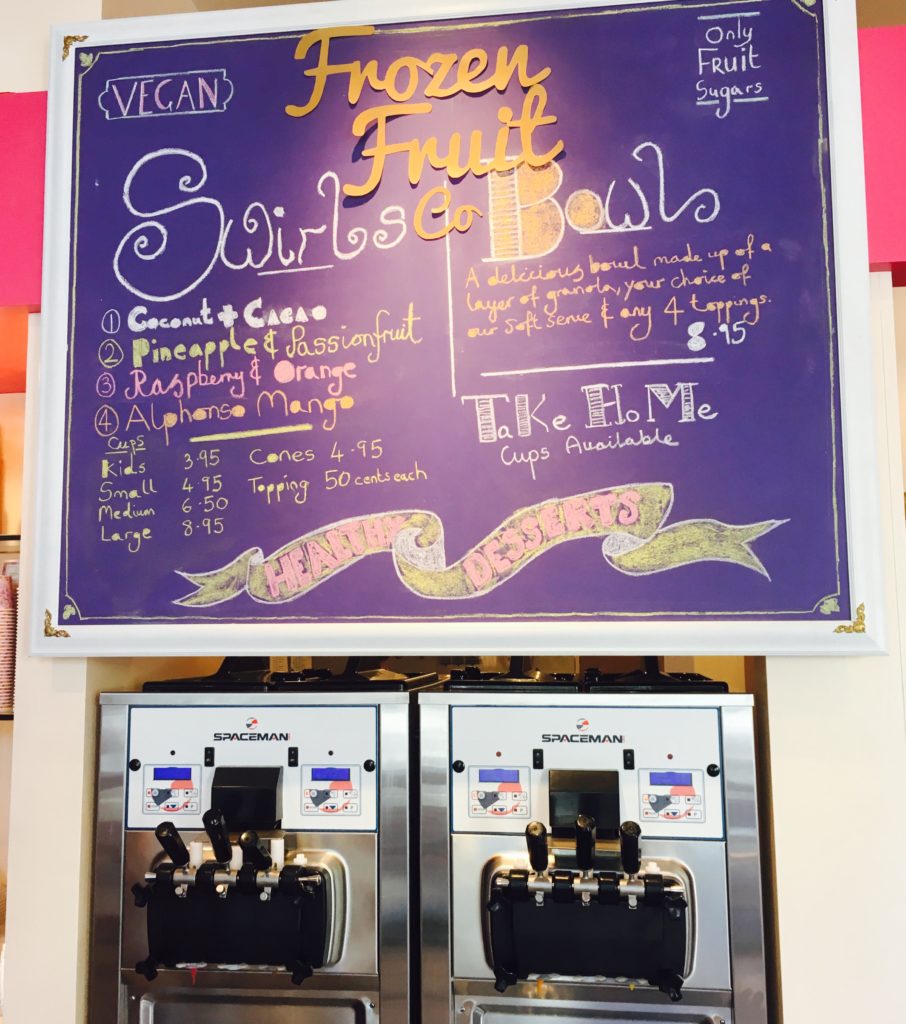 VEGAN
Frozen
Fruit
Co
Only
Fruit
Sugars
Swirls
① Coconut + Cacao
② Pineapple & Passionfruit
③ Raspberry & Orange
④ Alphonso Mango
Cups
Kids 3.95
Small 4.95
Medium 6.50
Large 8.95
Cones 4.95
Topping 50 cents each
Bowls
A delicious bowl made up of a
layer of granola, your choice of
our soft serve & any 4 toppings.
8.95
TaKe HoMe
Cups Available
HEALTHY DESSERTS
SPACEMAN
SPACEMAN